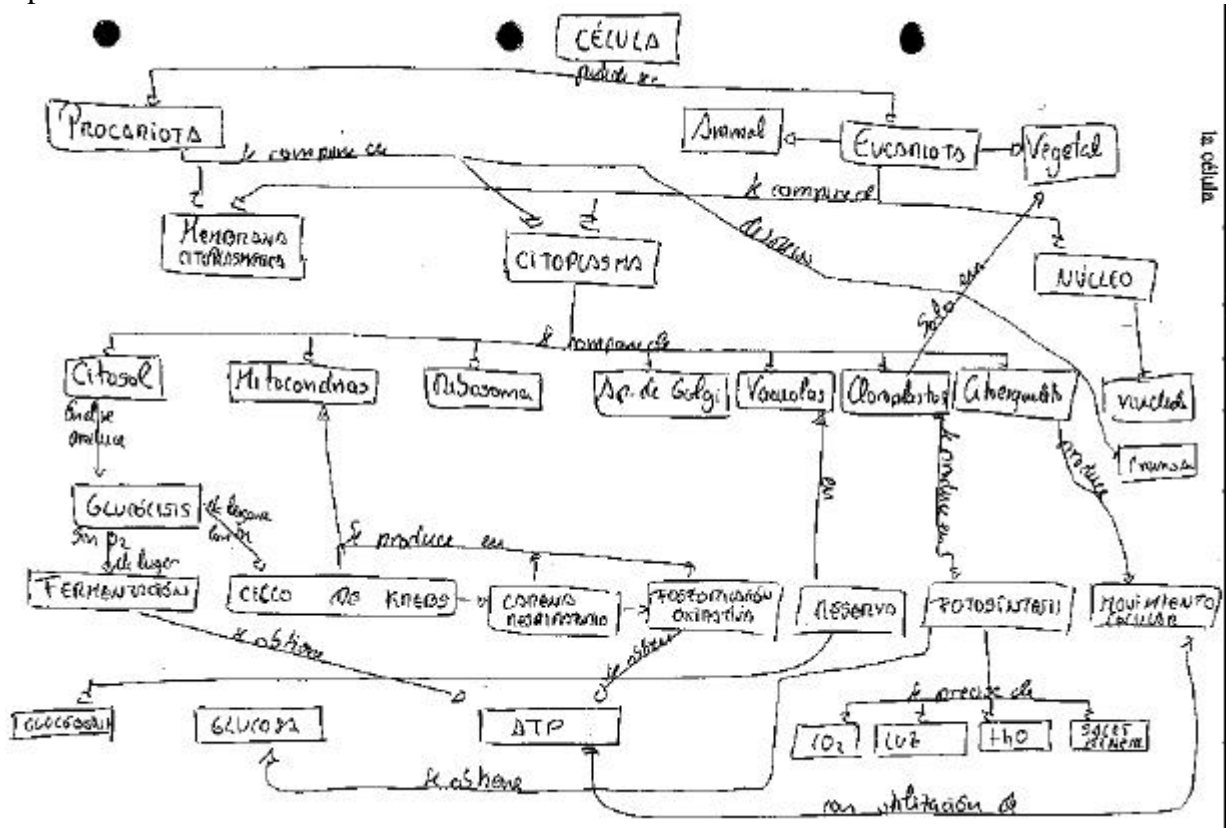 CÉLULA
puede ser
PROCARIOTA
Animal
EUCARIOTA
Vegetal
la célula
se compone de
se compone de
MEMBRANA
CITOPLASMATICA
CITOPLASMA
NÚCLEO
solo en
se compone de
Citosol
Mitocondrias
Ribosoma
Ap. de Golgi
Vacuolas
Cloroplastos
produce
en
se produce en
produce
GLUCÓLISIS
Sin O2
da lugar
se produce en
FERMENTACIÓN
CICLO DE KREBS
CADENA
RESPIRATORIA
FOSFORILACIÓN
OXIDATIVA
RESERVA
FOTOSÍNTESIS
MOVIMIENTO
CELULAR
se obtiene
se obtiene
se precisa de
GLUCOSA
ATP
CO2
LUZ
H2O
SALES
se obtiene
con utilización de